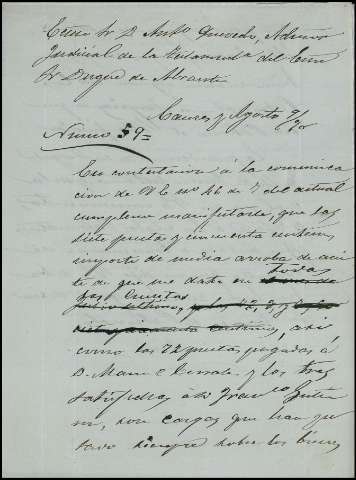 Excmo Sr D Antº Quevedo, Admor
Judicial de la Testamentª del Excmo
Sr Duque de Abrantes
Caceres y Agosto 9/70
Numero 59=
En contestacion á la comunica
cion de V E nº 46 de 7 del actual
cumpleme manifestarle, que las
siete pesetas y cincuenta centim,
importe de media arroba de acei
te de que me data en todas
las cuentas
asi
como las 72 pesetas pagadas á
D. Manuel y las tres
satisfechas a D. Franco
son cargos que han pe
sado siempre sobre los bienes